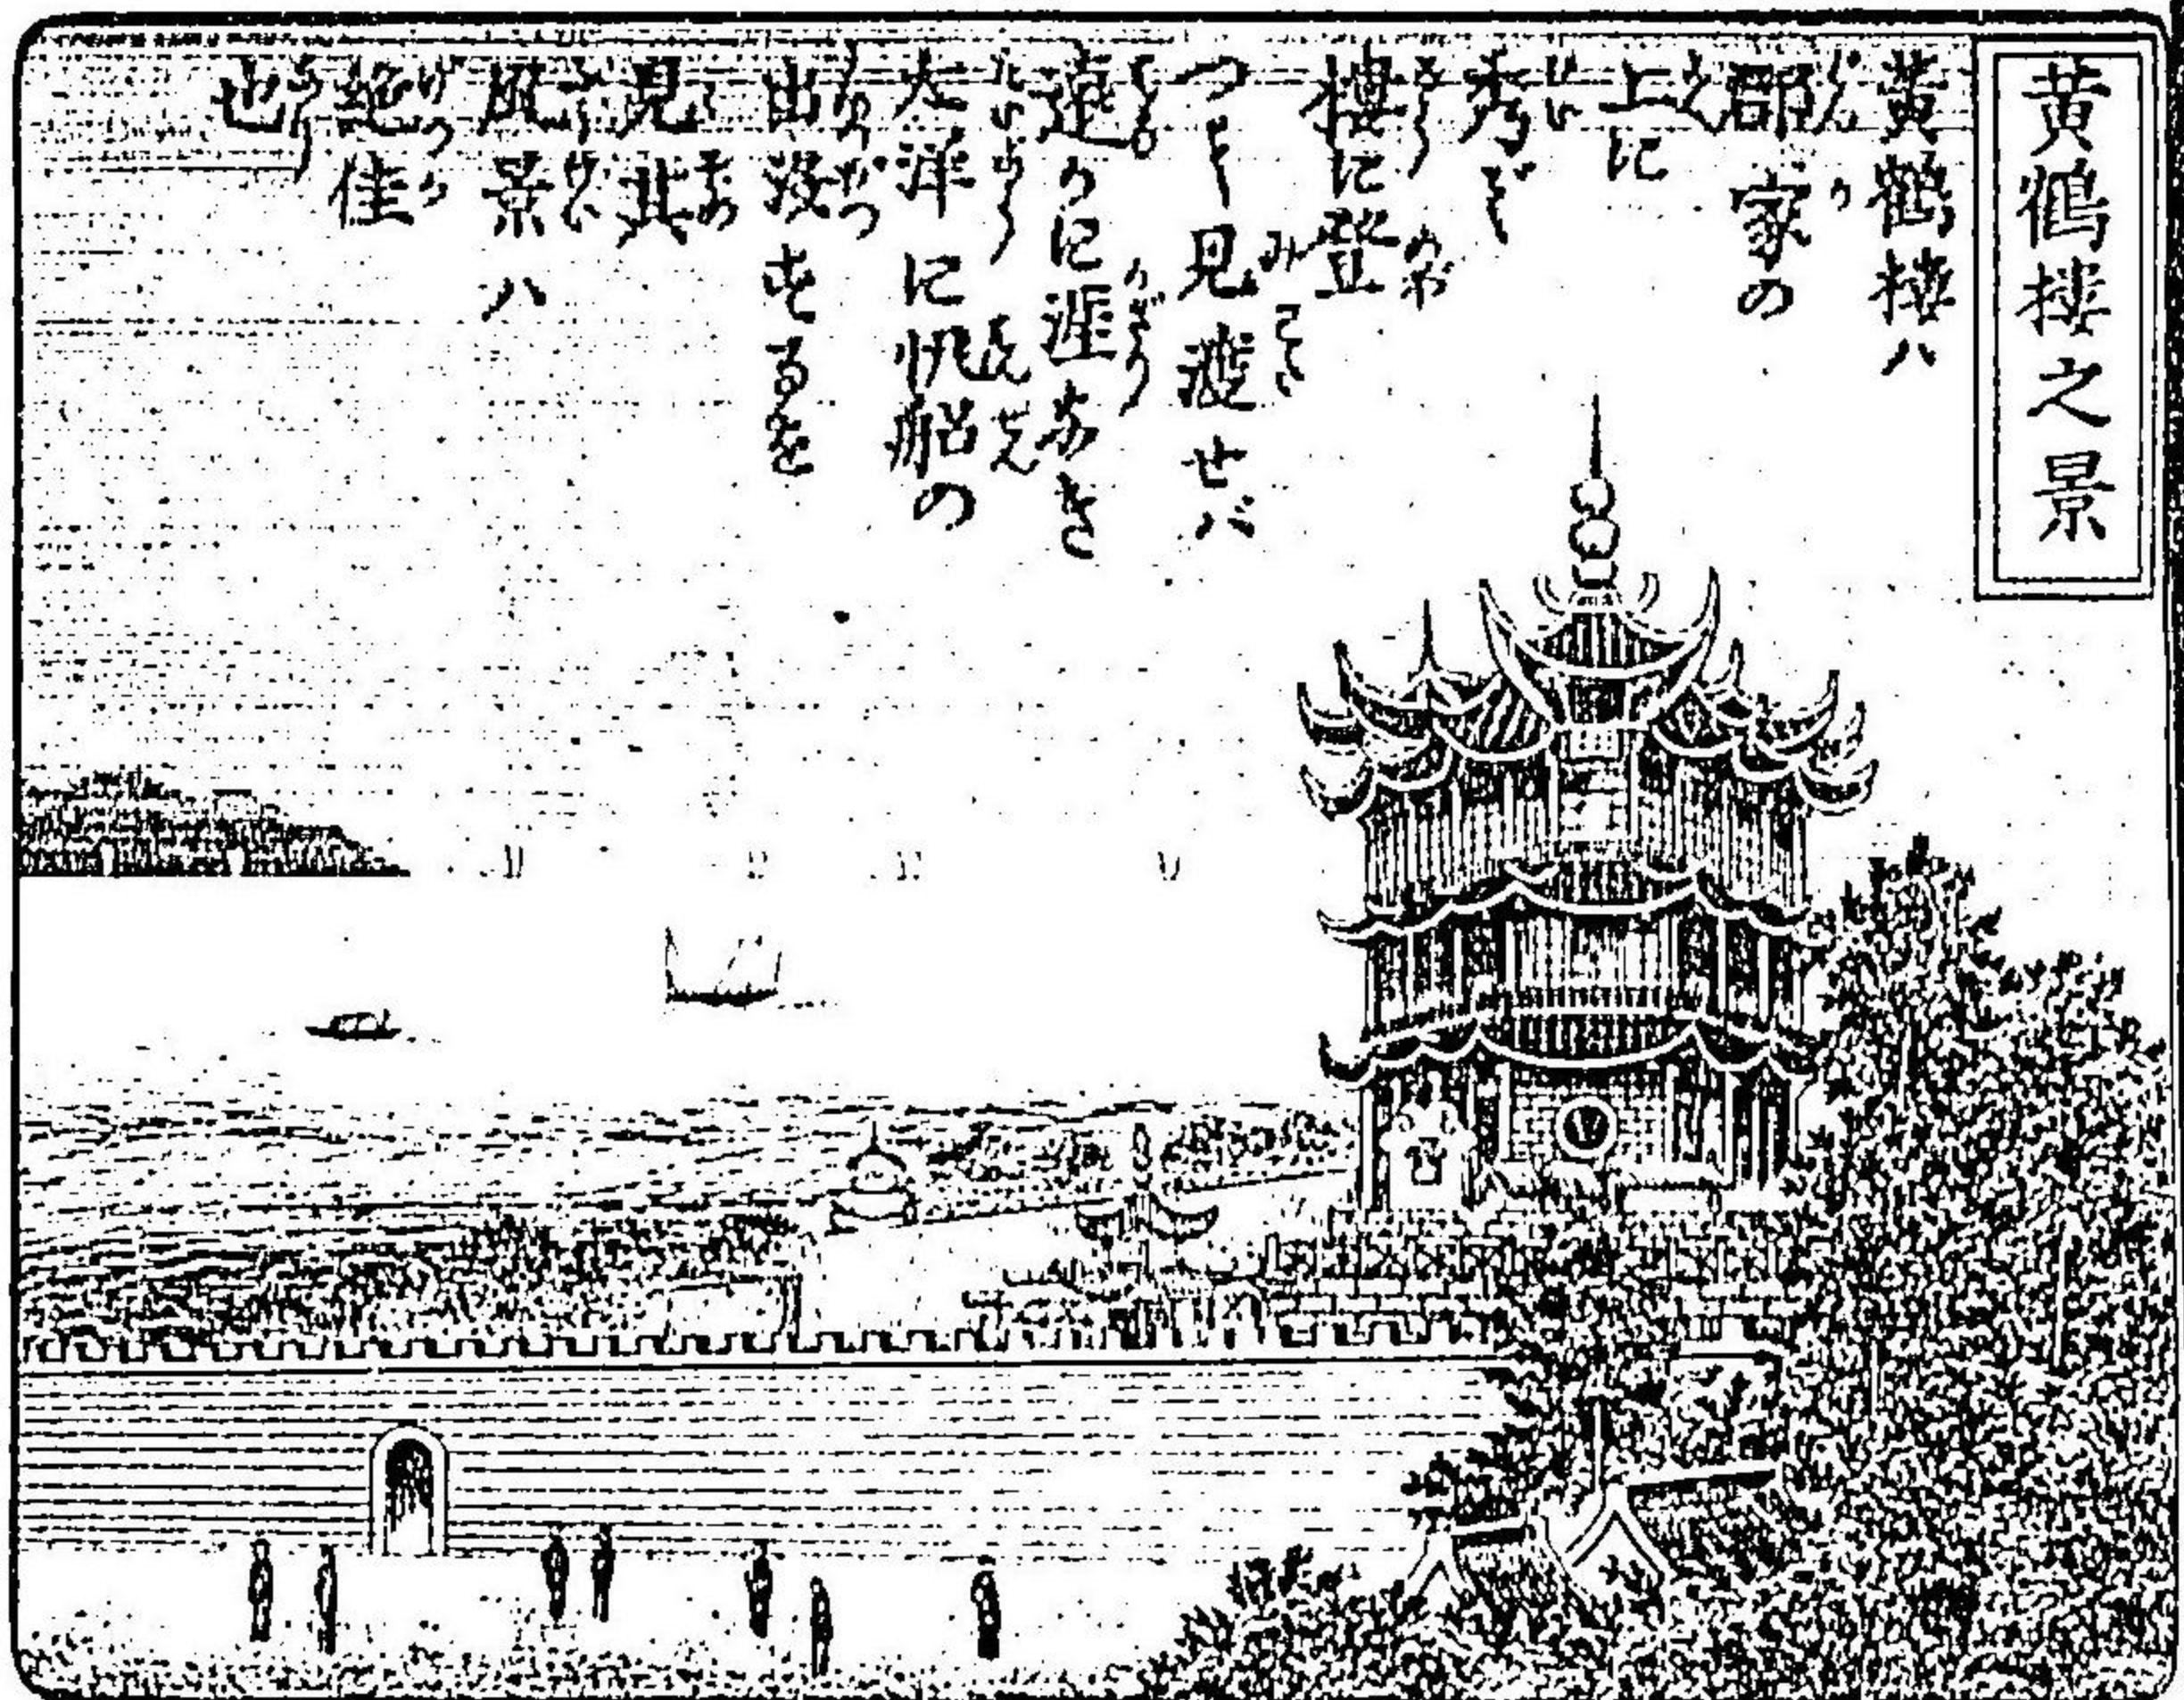 黄鶴樓之景
黄鶴樓ハ
郡家の
上に
秀で
樓に登
つて見渡せバ
遠かに涯なき
大洋に帆船の
出没するを
見其
風景ハ
絶佳
也